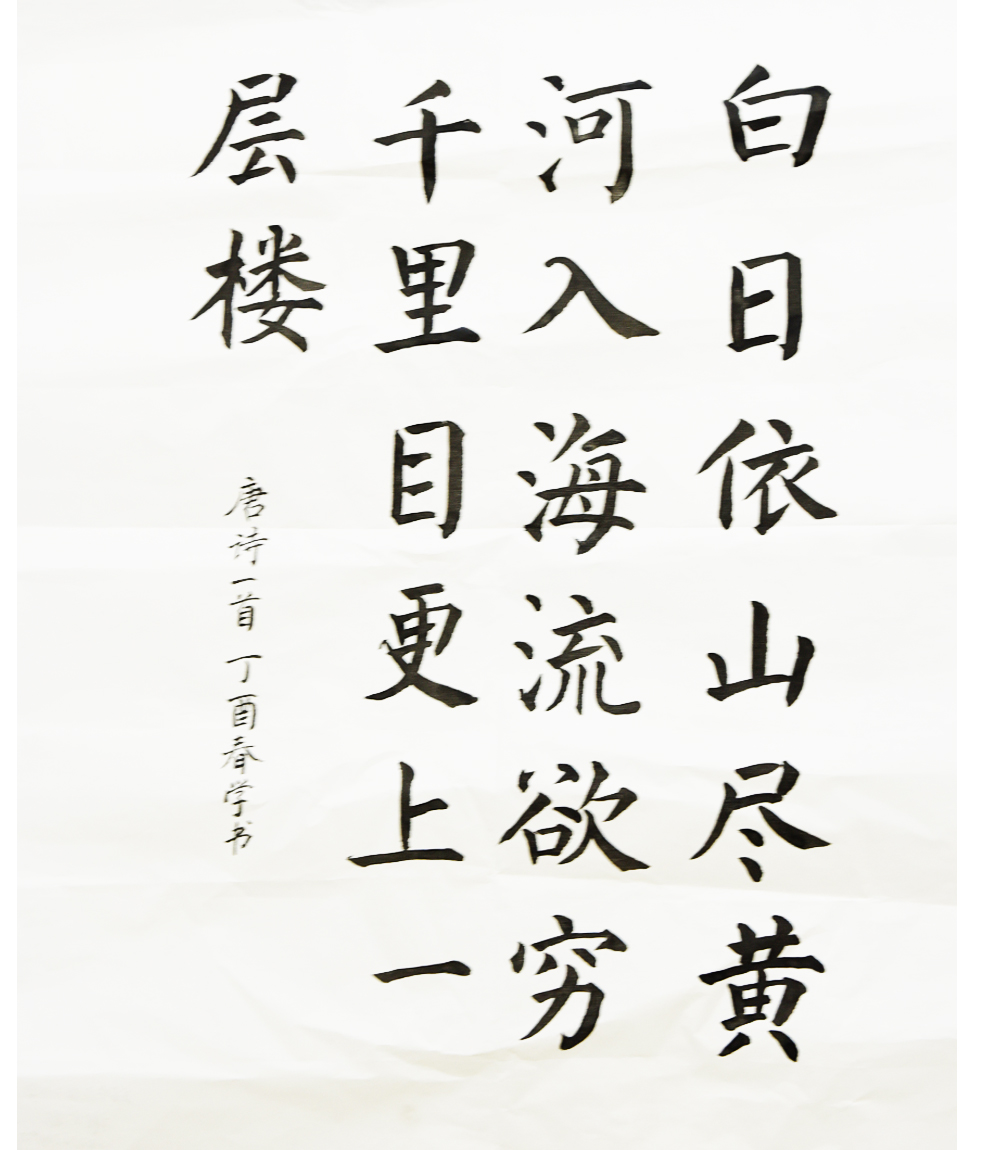 白日依山尽黄
河入海流欲穷
千里目更上一
层楼
唐诗一首 丁酉春学书